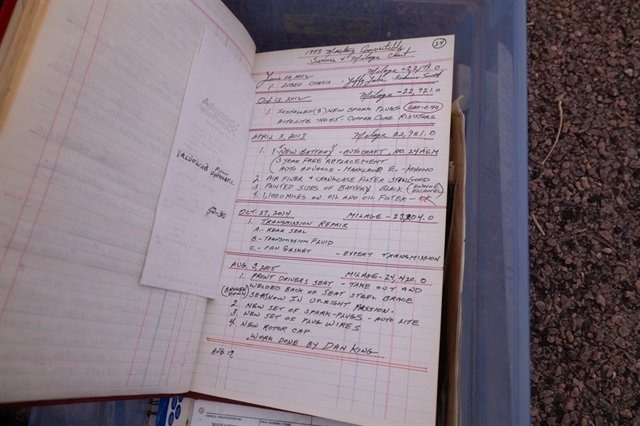 24
1973 Mustang Convertible
Service & Milage Chart
June 2012 Milage -22,479.0
1. Lubed Chasis -
Oct. 12, 2012 Milage - 22,921.0
1. Installed (8) New Spark Plugs
Autolite Copper Core Resistors
April 9, 2013 Milage 22,921.0
1. 1-New Battery - Autocraft, No. 24AGM
3 Year Free Replacement
(Auto Advance - Markland E. -
2. Air Filter & Crankcase Filter Still Good
3. Painted Sides of Battery Black (Engine Enamel)
4. 1,100 Miles on Oil and Oil Filter - OK
Oct. 27, 2014 Milage - 23,804.0
1. Transmission Repair
A. - Rear Seal
B. - Transmission Fluid
C. - Pan Gasket - Expert Transmission
Aug. 3, 2015 Milage - 24,420.0
1. Front Drivers Seat - Take Out and
Welded Back of Seat Steel Brace
(Broken Down) Seat Now in Upright Passion.
2. New Set of Spark-Plugs - Auto Lite
3. New Set of Plug Wires
4. New Rotor Cap
Work Done by Dan King
Aug 19